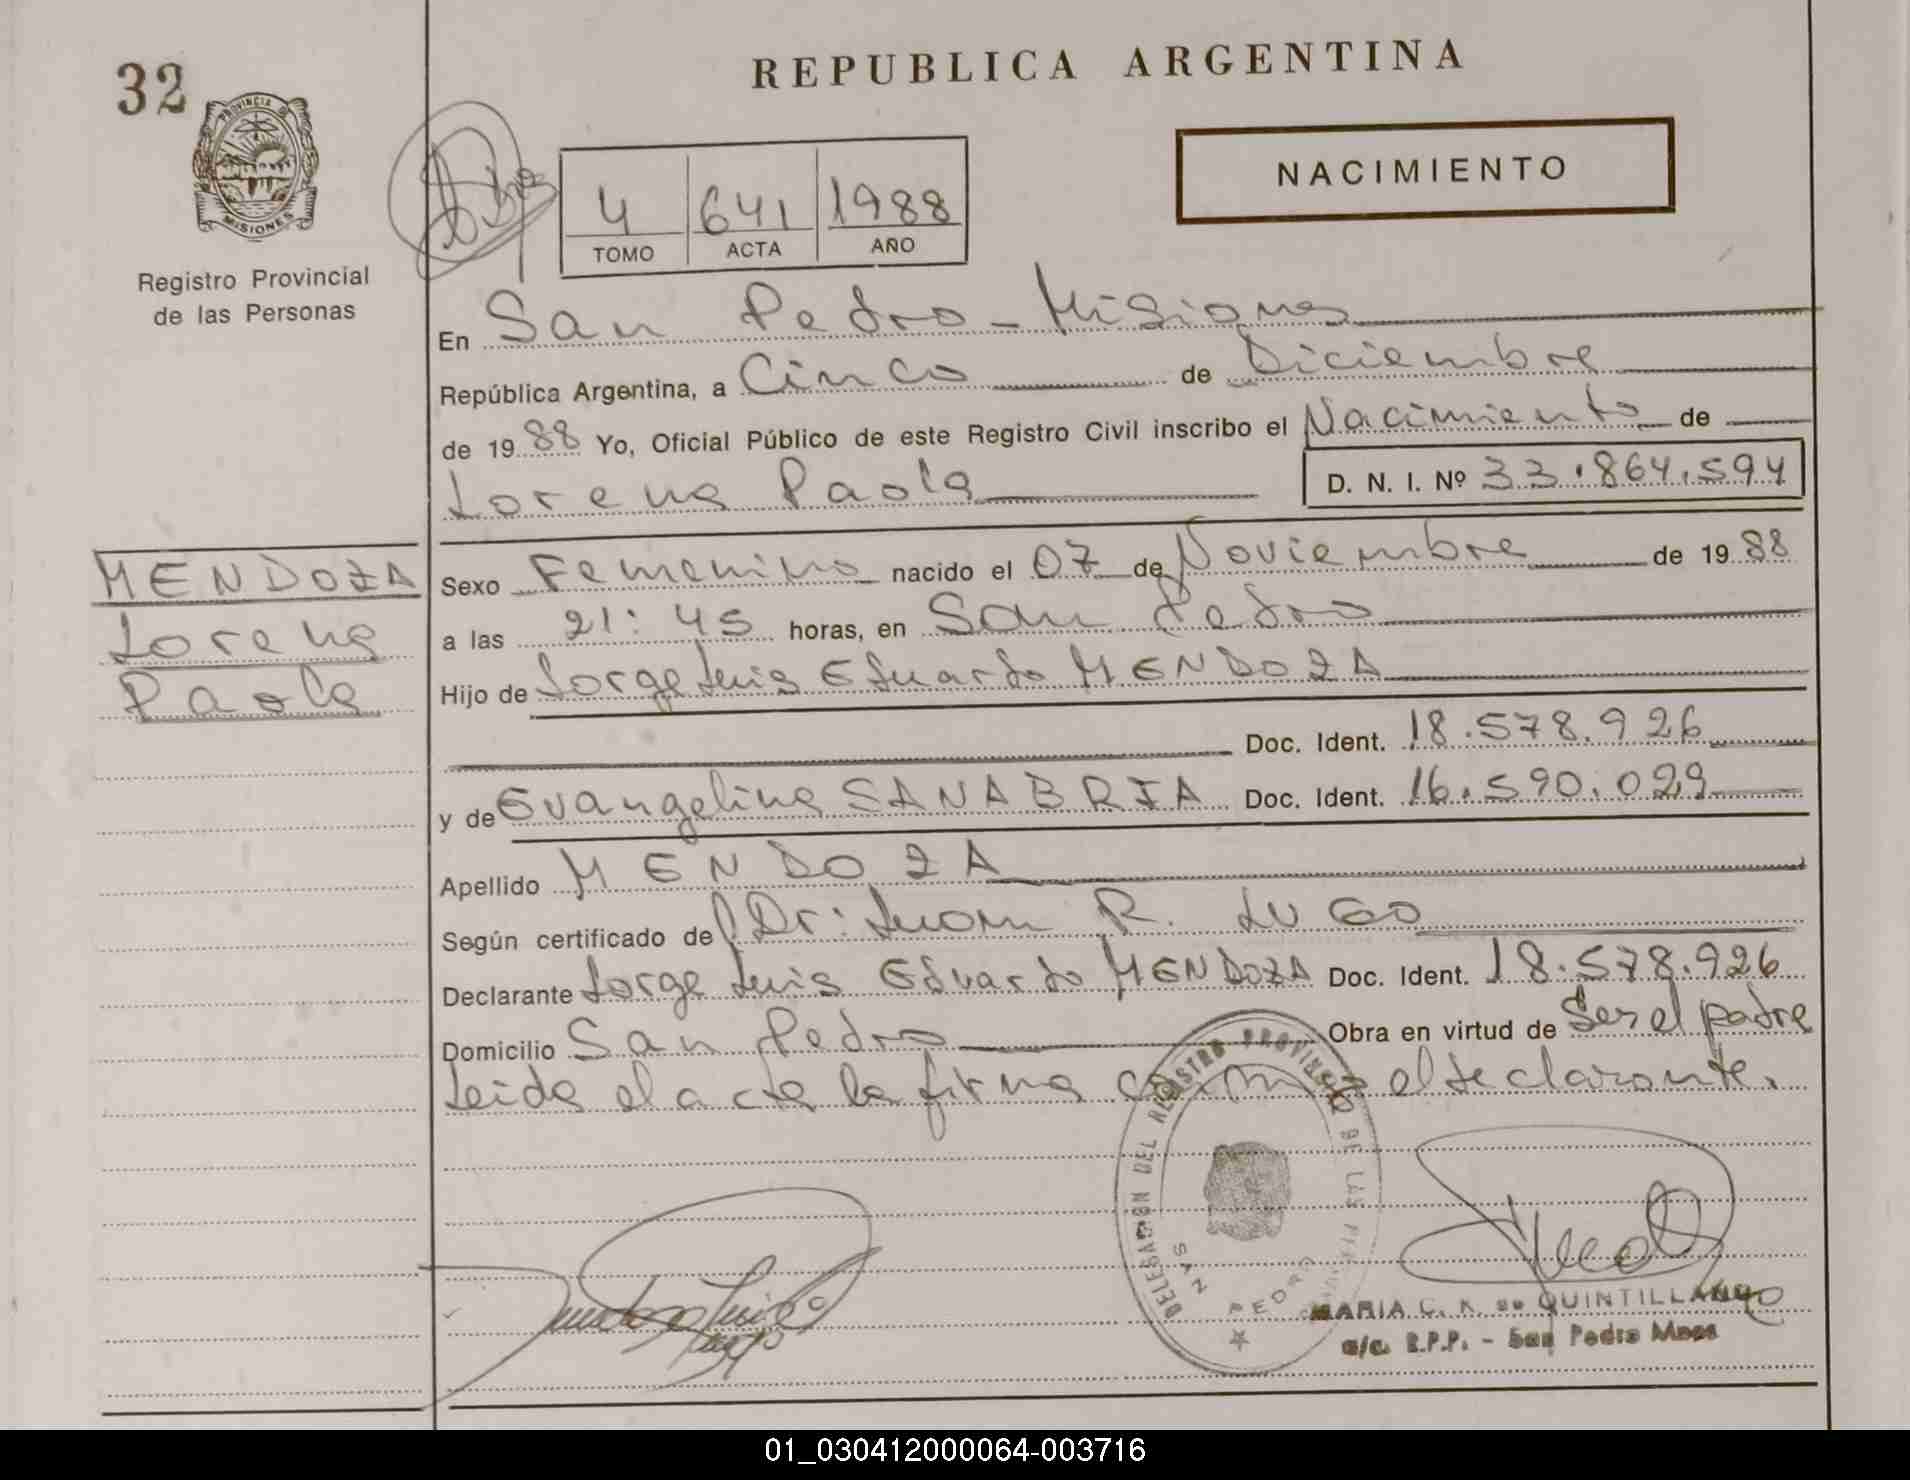 32
REPUBLICA ARGENTINA
PROVINCIA DE
MISIONES
Registro Provincial
de las Personas
NACIMIENTO
4 641 1988
TOMO ACTA AÑO
En San Pedro - Misiones
República Argentina, a Cinco de Diciembre
de 1988 Yo, Oficial Público de este Registro Civil inscribo el Nacimiento de
Lorena Paola D. N. I. Nº 33.864.594
MENDOZA
Lorena
Paola
Sexo Femenino nacido el 07 de Noviembre de 1988
a las 21:45 horas, en San Pedro
Hijo de Jorge Luis Eduardo MENDOZA
Doc. Ident. 18.578.926
y de Evangelina SANABRIA Doc. Ident. 16.590.029
Apellido MENDOZA
Según certificado de Dr: Juan R. LUGO
Declarante Jorge Luis Eduardo MENDOZA Doc. Ident. 18.578.926
Domicilio San Pedro Obra en virtud de Ser el padre
Leida el acta la firma conmigo el declarante.
DELEGACION DEL REGISTRO PROVINCIAL DE LAS
SAN PEDRO
MARIA C. K. de QUINTILLANO
a/c. R.P.P. - San Pedro Mnes
01_030412000064-003716